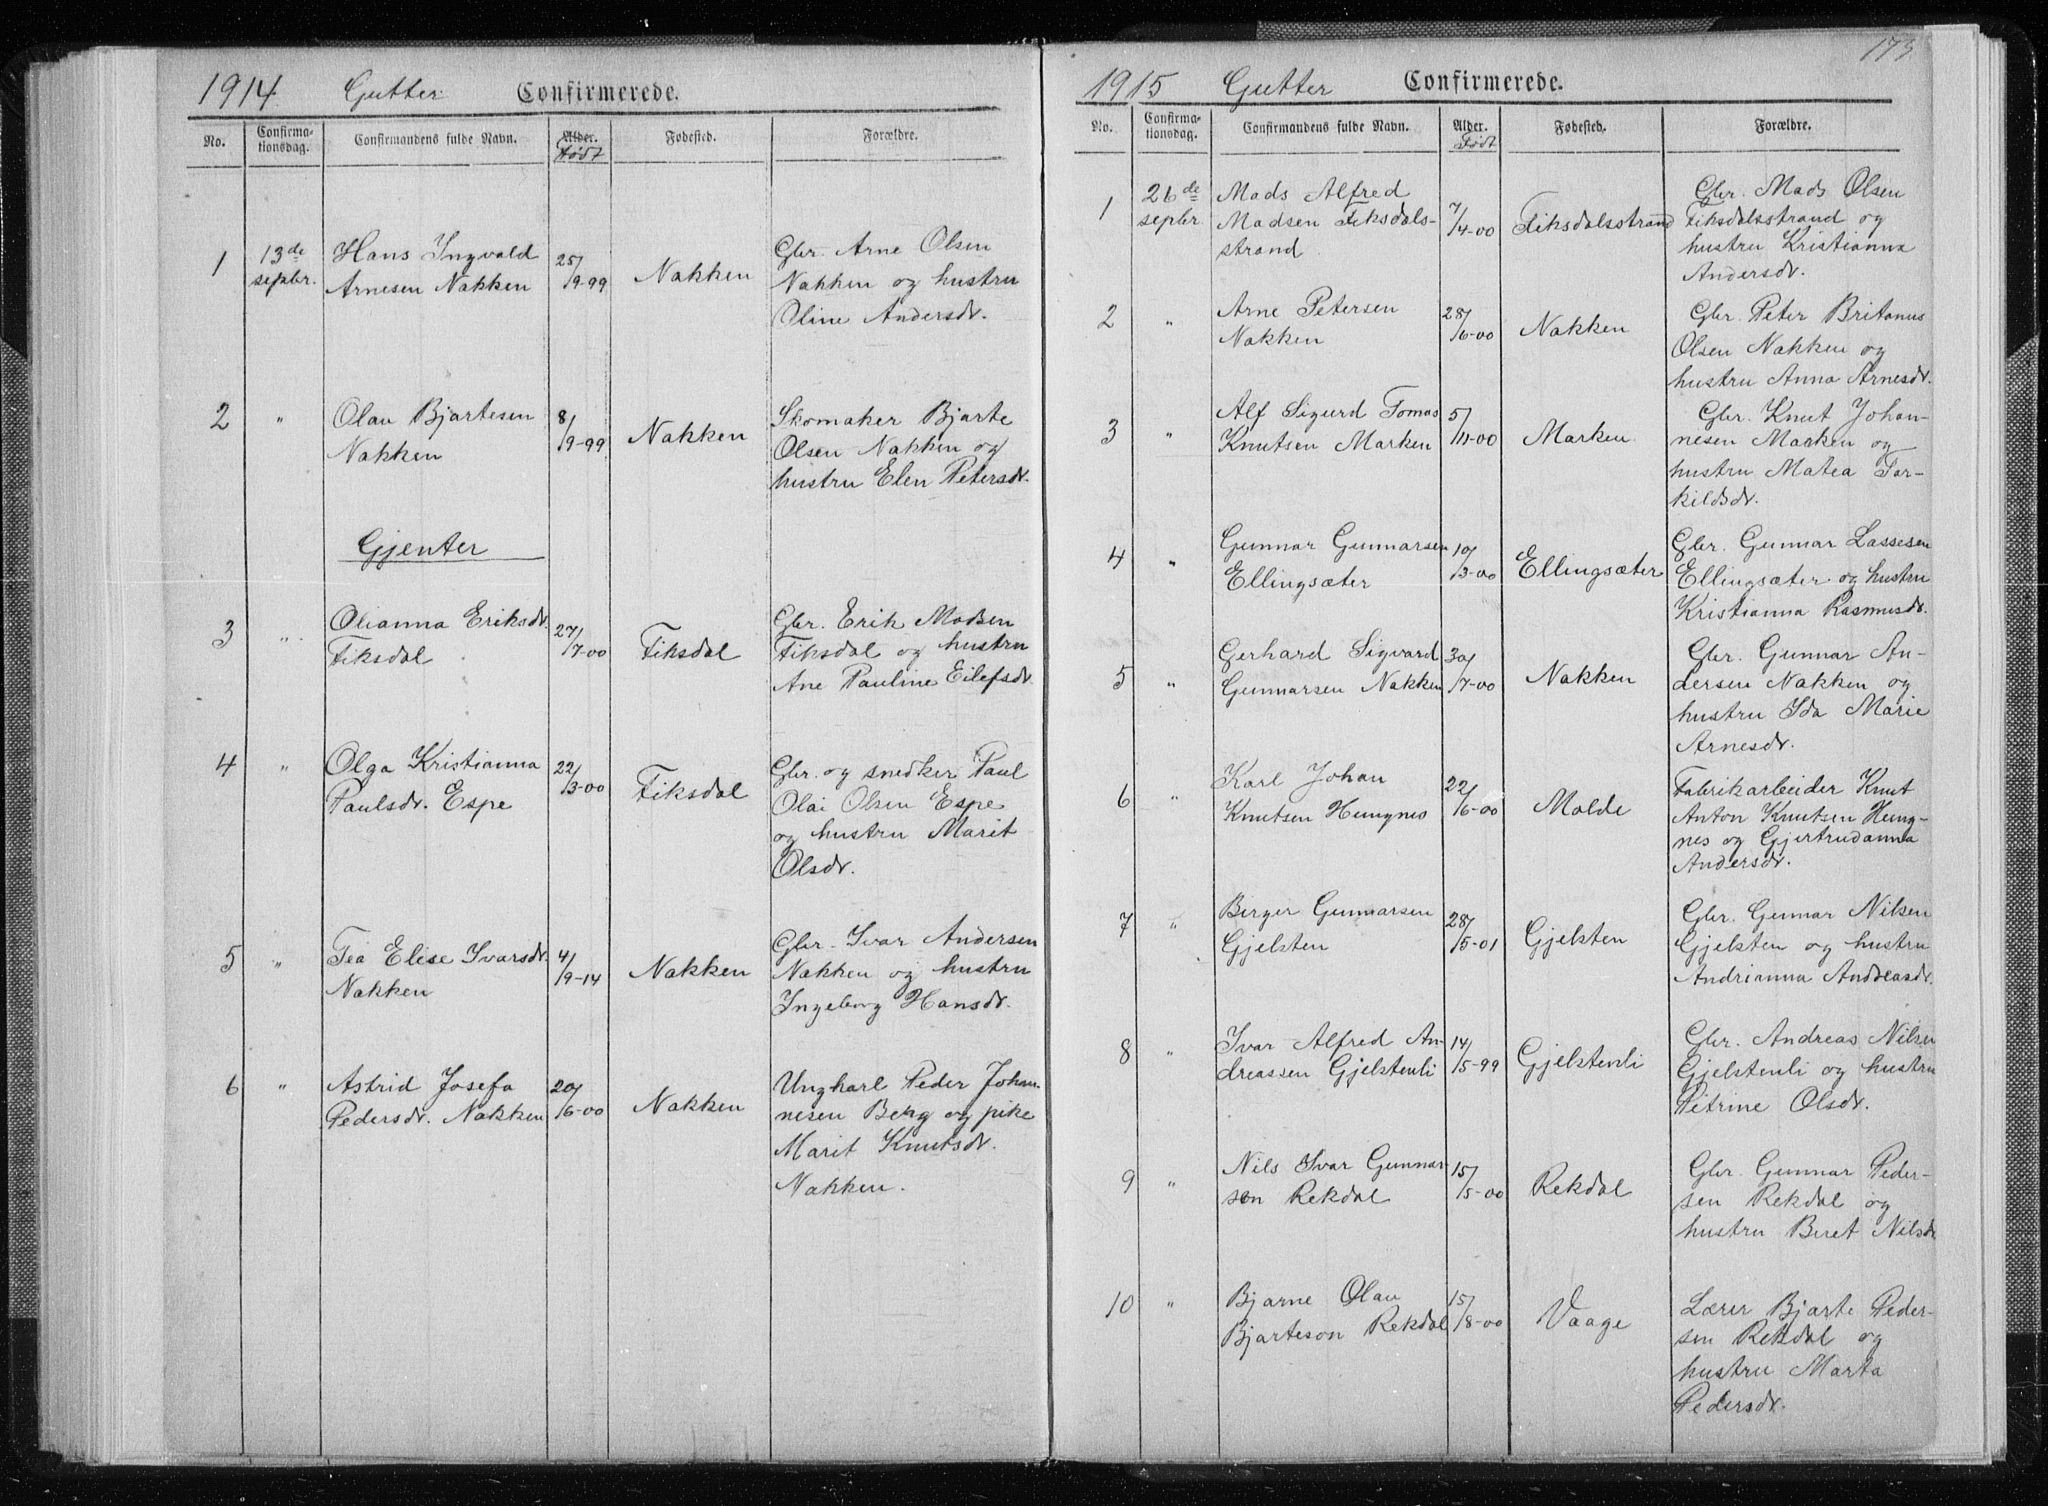 1914 Gutter Confirmerede.
No. Confirma-
tionsdag. Confirmandens fulde Navn. Alder. Født Fødested. Forældre.
1 13de
sepbr. Hans Ingvald
Arnesen Nakken 25/9-99 Nakken Gbr. Arne Olsen
Nakken og hustru
Oline Andersdr.
2 " Olau Bjartesen
Nakken 8/9-99 Nakken Skomaker Bjarte
Olsen Nakken og
hustru Elen Petersdr.
Gjenter
3 " Olianna Eriksdr.
Fiksdal 27/7-00 Fiksdal Gbr. Erik Madsen
Fiksdal og hustru
Ane Pauline Eilefsdr.
4 " Olga Kristianna
Paulsdr. Espe 22/3-00 Fiksdal Gbr. og snedker Paul
Olai Olsen Espe
og hustru Marit
Olsdr.
5 " Tea Elise Ivarsdr.
Nakken 4/9-14 Nakken Gbr. Ivar Andersen
Nakken og hustru
Ingeborg Hansdr.
6 " Astrid Josefa
Pedersdr. Nakken 20/6-00 Nakken Ungkarl Peder Johan-
nesen Berg og pike
Marit Knutsdr.
Nakken.
173
1915 Gutter Confirmerede.
No. Confirma-
tionsdag. Confirmandens fulde Navn. Alder. Født Fødested. Forældre.
1 26de
sepbr. Mads Alfred
Madsen Fiksdals-
strand 7/4-00 Fiksdalsstrand Gbr. Mads Olsen
Fiksdalsstrand og
hustru Kristianna
Andersdr.
2 " Arne Petersen
Nakken 28/6-00 Nakken Gbr. Peter Britanus
Olsen Nakken og
hustru Anna Arnesdr.
3 " Alf Sigurd Tomas
Knutsen Marken 5/11-00 Marken Gbr. Knut Johan-
nesen Marken og
hustru Matea Tor-
kildsdr.
4 " Gunnar Gunnarsen
Ellingsæter 10/3-00 Ellingsæter Gbr. Gunnar Lassesen
Ellingsæter og hustru
Kristianna Rasmusdr.
5 " Gerhard Sigvard
Gunnarsen Nakken 30/7-00 Nakken Gbr. Gunnar An-
dersen Nakken og
hustru Ida Marie
Arnesdr.
6 " Karl Johan
Knutsen Hungnes 22/6-00 Molde Fabrikarbeider Knut
Anton Knutsen Hung-
nes og Gjertrudanna
Andersdr.
7 " Birger Gunnarsen
Gjelsten 28/5-01 Gjelsten Gbr. Gunnar Nilsen
Gjelsten og hustru
Andrianna Andreasdr.
8 " Ivar Alfred An-
dreassen Gjelstenli 14/5-99 Gjelstenli Gbr. Andreas Nilsen
Gjelstenli og hustru
Petrine Olsdr.
9 " Nils Ivar Gunnar-
sen Rekdal 15/5-00 Rekdal Gbr. Gunnar Peder-
sen Rekdal og
hustru Beret Nilsdr
10 " Bjarne Olau
Bjarteson Rekdal 15/8-00 Vaage Lærer Bjarte Peder-
sen Rekdal og
hustru Marta
Pedersdr.